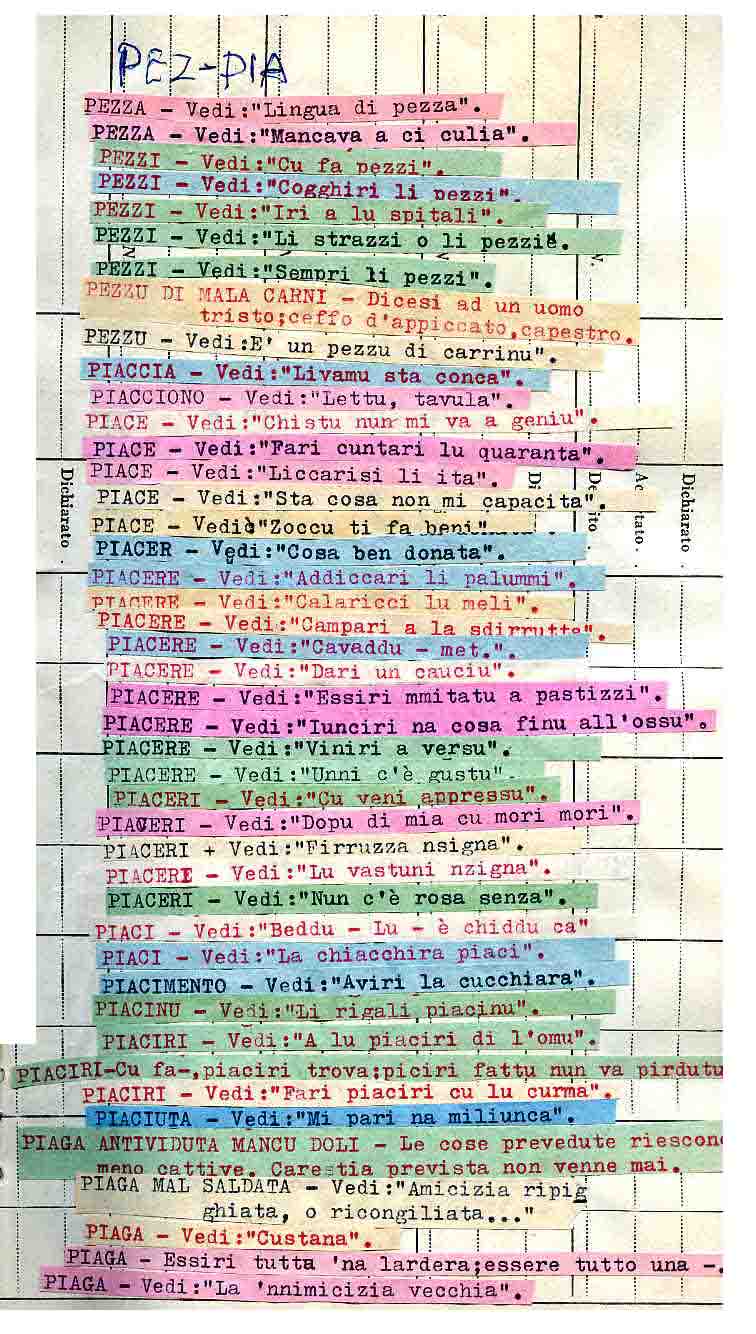 PEZ-PIA
PEZZA - Vedi:"Lingua di pezza".
PEZZA - Vedi:"Mancava a ci culia".
PEZZI - Vedi:"Cu fa pezzi".
PEZZI - Vedi:"Cogghiri li pezzi".
PEZZI - Vedi:"Iri a lu spitali".
PEZZI - Vedi:"Li strazzi o li pezzi".
PEZZI - Vedi:"Sempri li pezzi".
PEZZU DI MALA CARNI - Dicesi ad un uomo
tristo;ceffo d'appiccato,capestro.
PEZZU - Vedi:E' un pezzu di carrinu".
PIACCIA - Vedi:"Livamu sta conca".
PIACCIONO - Vedi:"Lettu, tavula".
PIACE - Vedi:"Chistu nun mi va a geniu".
PIACE - Vedi:"Fari cuntari lu quaranta".
PIACE - Vedi:"Liccarisi li ita".
PIACE - Vedi:"Sta cosa non mi capacita".
PIACE - Vedi:"Zoccu ti fa beni".
PIACER - Vedi:"Cosa ben donata".
PIACERE - Vedi:"Addiccari li palummi".
PIACERE - Vedi:"Calaricci lu meli".
PIACERE - Vedi:"Campari a la sdirrutta".
PIACERE - Vedi:"Cavaddu - met.".
PIACERE - Vedi:"Dari un cauciu".
PIACERE - Vedi:"Essiri mmitatu a pastizzi".
PIACERE - Vedi:"Iunciri na cosa finu all'ossu".
PIACERE - Vedi:"Viniri a versu".
PIACERE - Vedi:"Unni c'è gustu".
PIACERI - Vedi:"Cu veni appressu".
PIACERI - Vedi:"Dopu di mia cu mori mori".
PIACERI + Vedi:"Firruzza nsigna".
PIACERI - Vedi:"Lu vastuni nzigna".
PIACERI - Vedi:"Nun c'è rosa senza".
PIACI - Vedi:"Beddu - Lu - è chiddu ca"
PIACI - Vedi:"La chiacchira piaci".
PIACIMENTO - Vedi:"Aviri la cucchiara".
PIACINU - Vedi:"Li rigali piacinu".
PIACIRI - Vedi:"A lu piaciri di l'omu".
PIACIRI-Cu fa-,piaciri trova;piciri fattu nun va pirdutu
PIACIRI - Vedi:"Fari piaciri cu lu curma".
PIACIUTA - Vedi:"Mi pari na miliunca".
PIAGA ANTIVIDUTA MANCU DOLI - Le cose prevedute riescon
meno cattive. Carestia prevista non venne mai.
PIAGA MAL SALDATA - Vedi:"Amicizia ripig
ghiata, o ricongiliata..."
PIAGA - Vedi:"Custana".
PIAGA - Essiri tutta 'na lardera;essere tutto una -.
PIAGA - Vedi:"La 'nnimicizia vecchia".
Dichiarato.
Dichiarato.